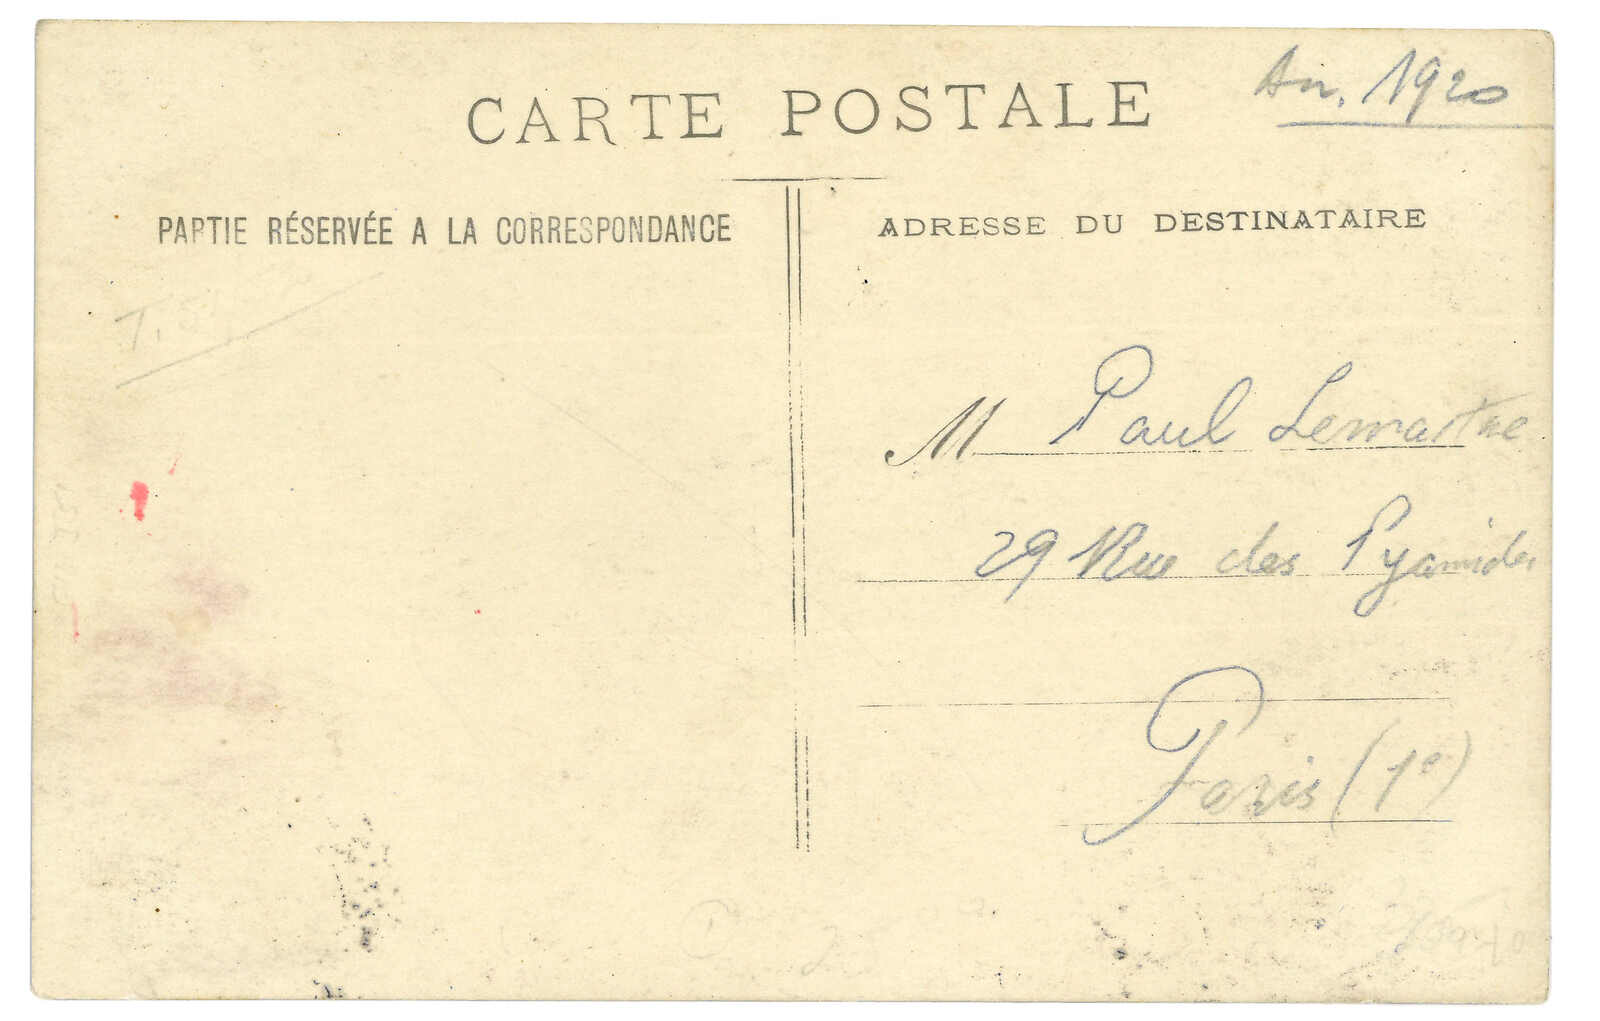 An. 1920
CARTE POSTALE
PARTIE RÉSERVÉE A LA CORRESPONDANCE
ADRESSE DU DESTINATAIRE
M Paul Lemaitre
29 Rue des Pyamides
Paris (1e)